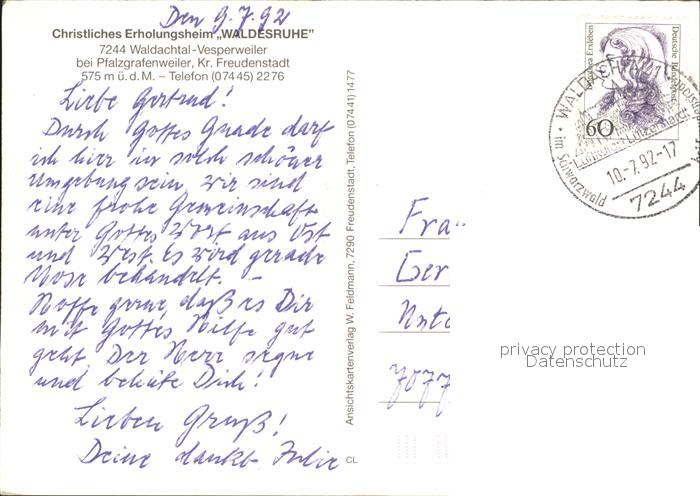 Den 9.7.92
Christliches Erholungsheim „WALDESRUHE"
7244 Waldachtal-Vesperweiler
bei Pfalzgrafenweiler, Kr. Freudenstadt
575 m ü. d. M. – Telefon (07445) 2276
Liebe Gertrud!
Durch Gottes Gnade darf
ich hier in solch schöner
Umgebung sein, wir sind
eine frohe Gemeinschaft
unter Gottes Wort aus Ost
und West. es wird gerade
Mose behandelt. –
Hoffe gerne, daß es Dir
mit Gottes Hilfe gut
geht. Der Herr segne
und behüte Dich!
Lieben Gruß!
Deine dankb.
CL
Ansichtskartenverlag W. Feldmann, 7290 Freudenstadt, Telefon (07441) 1477
Deutsche Bundespost
60
WALDACHTAL 1
im Schwarzwald
10.-7.92-17
7244
Fra
Ger
privacy protection
Datenschutz